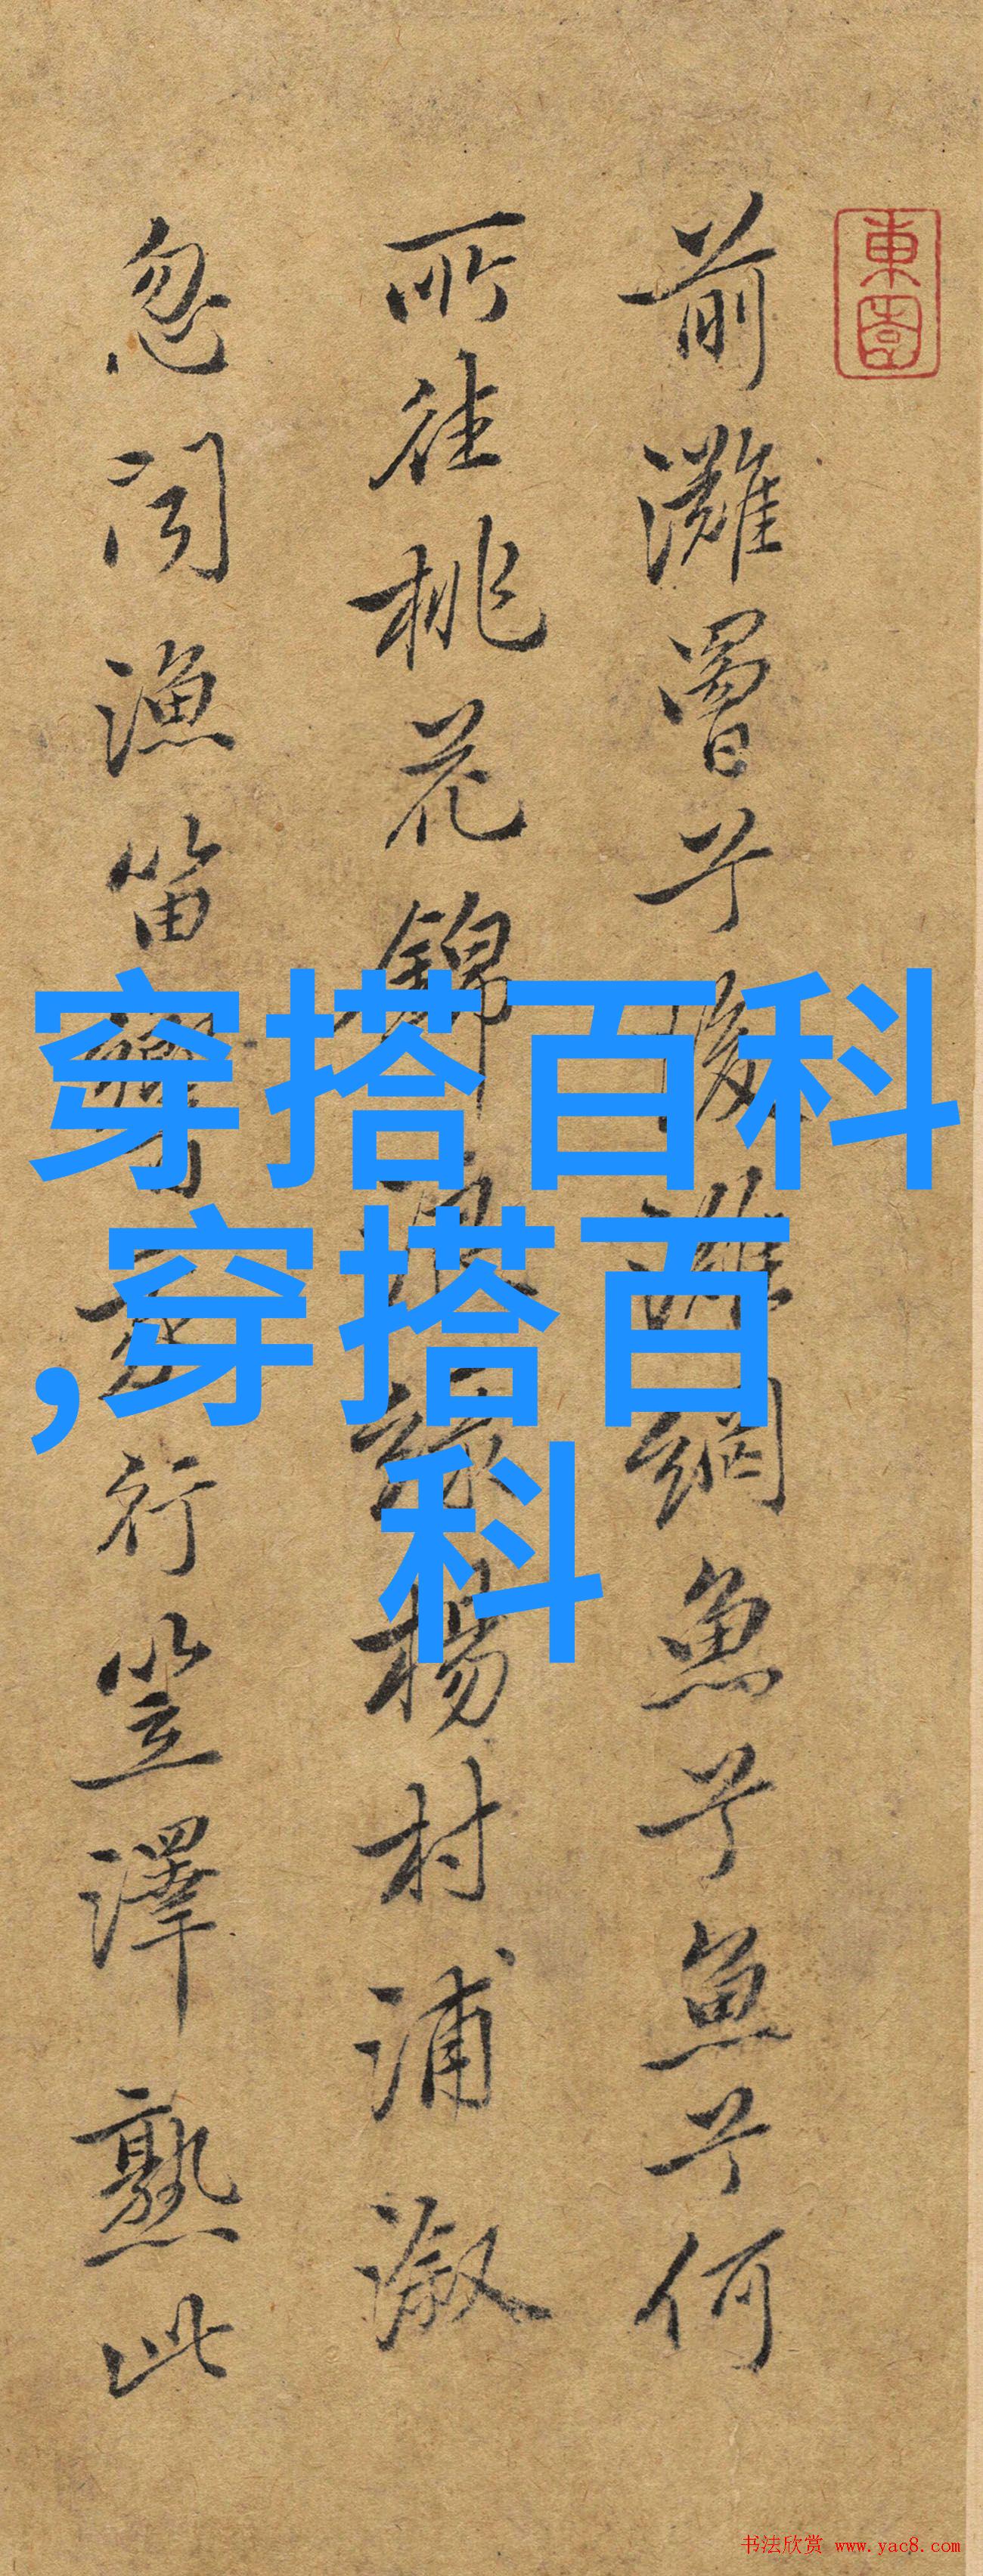 東園
前灘罾兮後灘網魚兮魚兮何
所往桃花錦浪綠楊村浦溆
忽聞漁笛響我行笠澤熟此
穿搭百科
,穿搭百
科
书法欣赏 www.yac8.com